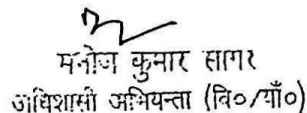 मनोज कुमार सागर
अधिशासी अभियन्ता (वि०/याँ०)